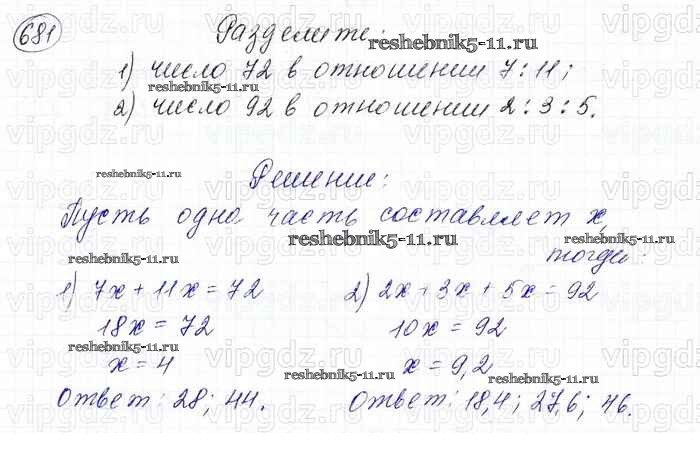 681 Разделите:
reshebnik5-11.ru
1) число 72 в отношении 7:11;
reshebnik5-11.ru
2) число 92 в отношении 2:3:5.
reshebnik5-11.ru
Решение:
Пусть одна часть составляет x,
reshebnik5-11.ru reshebnik5-11.ru
тогда:
reshebnik5-11.ru
1) 7x + 11x = 72 2) 2x + 3x + 5x = 92
18x = 72 10x = 92
reshebnik5-11.ru
x = 4 x = 9,2
reshebnik5-11.ru reshebnik5-11.ru
Ответ: 28; 44. Ответ: 18,4; 27,6; 46.
vipgdz.ru